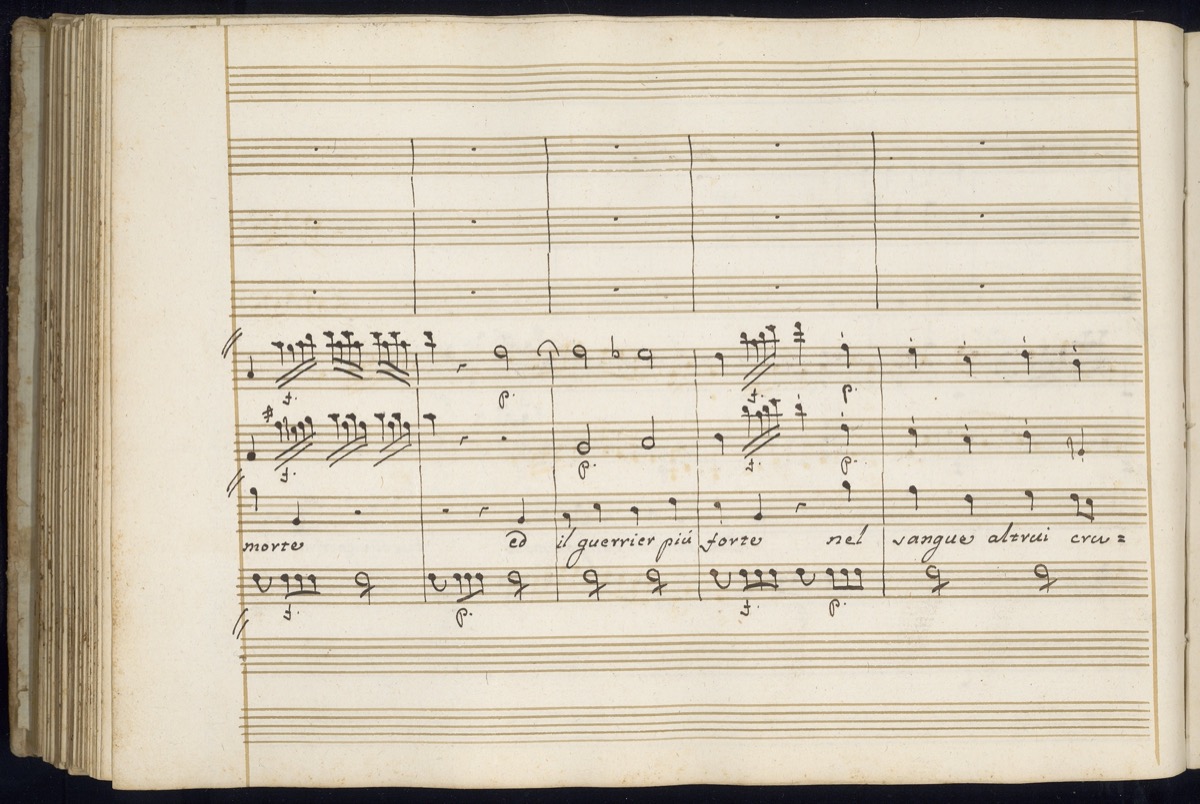 f. p. f. p.
f. p. f. p.
morte ed il guerrier più forte nel sangue altrui cru=
f. p. f. p.